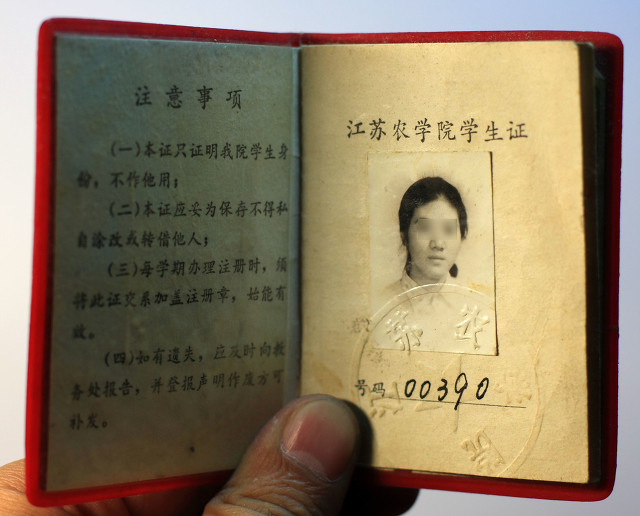 注意事项
(一)本证只证明我院学生身
份，不作他用；
(二)本证应妥为保存不得私
自涂改或转借他人；
(三)每学期办理注册时，须
将此证交系加盖注册章，始能有
效。
(四)如有遗失，应及时向教
务处报告，并登报声明作废方可
补发。
江苏农学院学生证
号码 00390